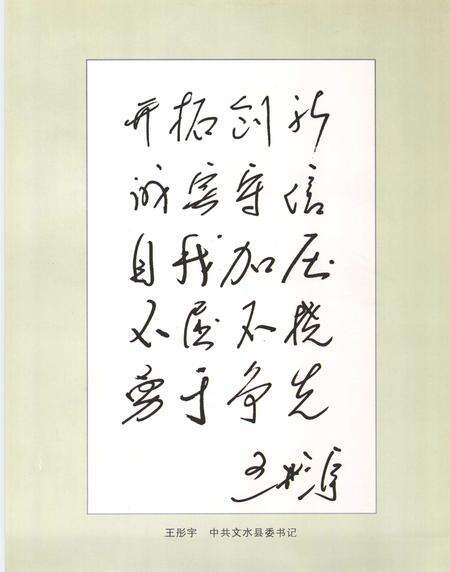 开拓创新
诚实守信
自我加压
不屈不挠
勇于争先
王彤宇
王彤宇 中共文水县委书记